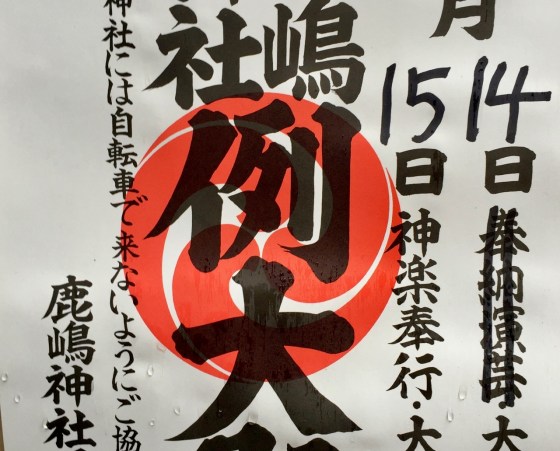 月
14日奉納演芸・大
15日神楽奉行・大
嶋
社
例大
神社には自転車で来ないようにご協
鹿嶋神社